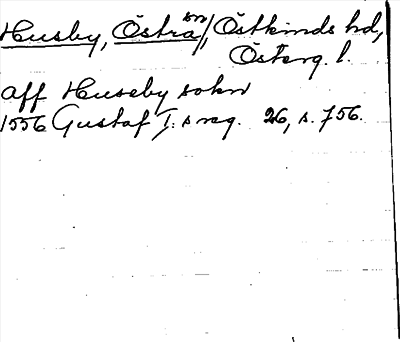 Husby, Östra sn, Östkinds hd,
Österg. l.
aff Huseby sokn
1556 Gustaf I:s reg. 26, s. 756.